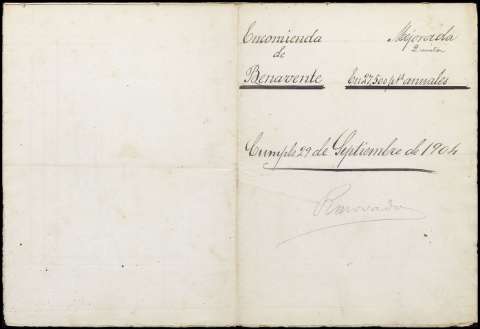 Encomienda
de
Benavente
Mejorada
En 27,500 pts annales
Cumple 29 de Septiembre de 1904
Renovado